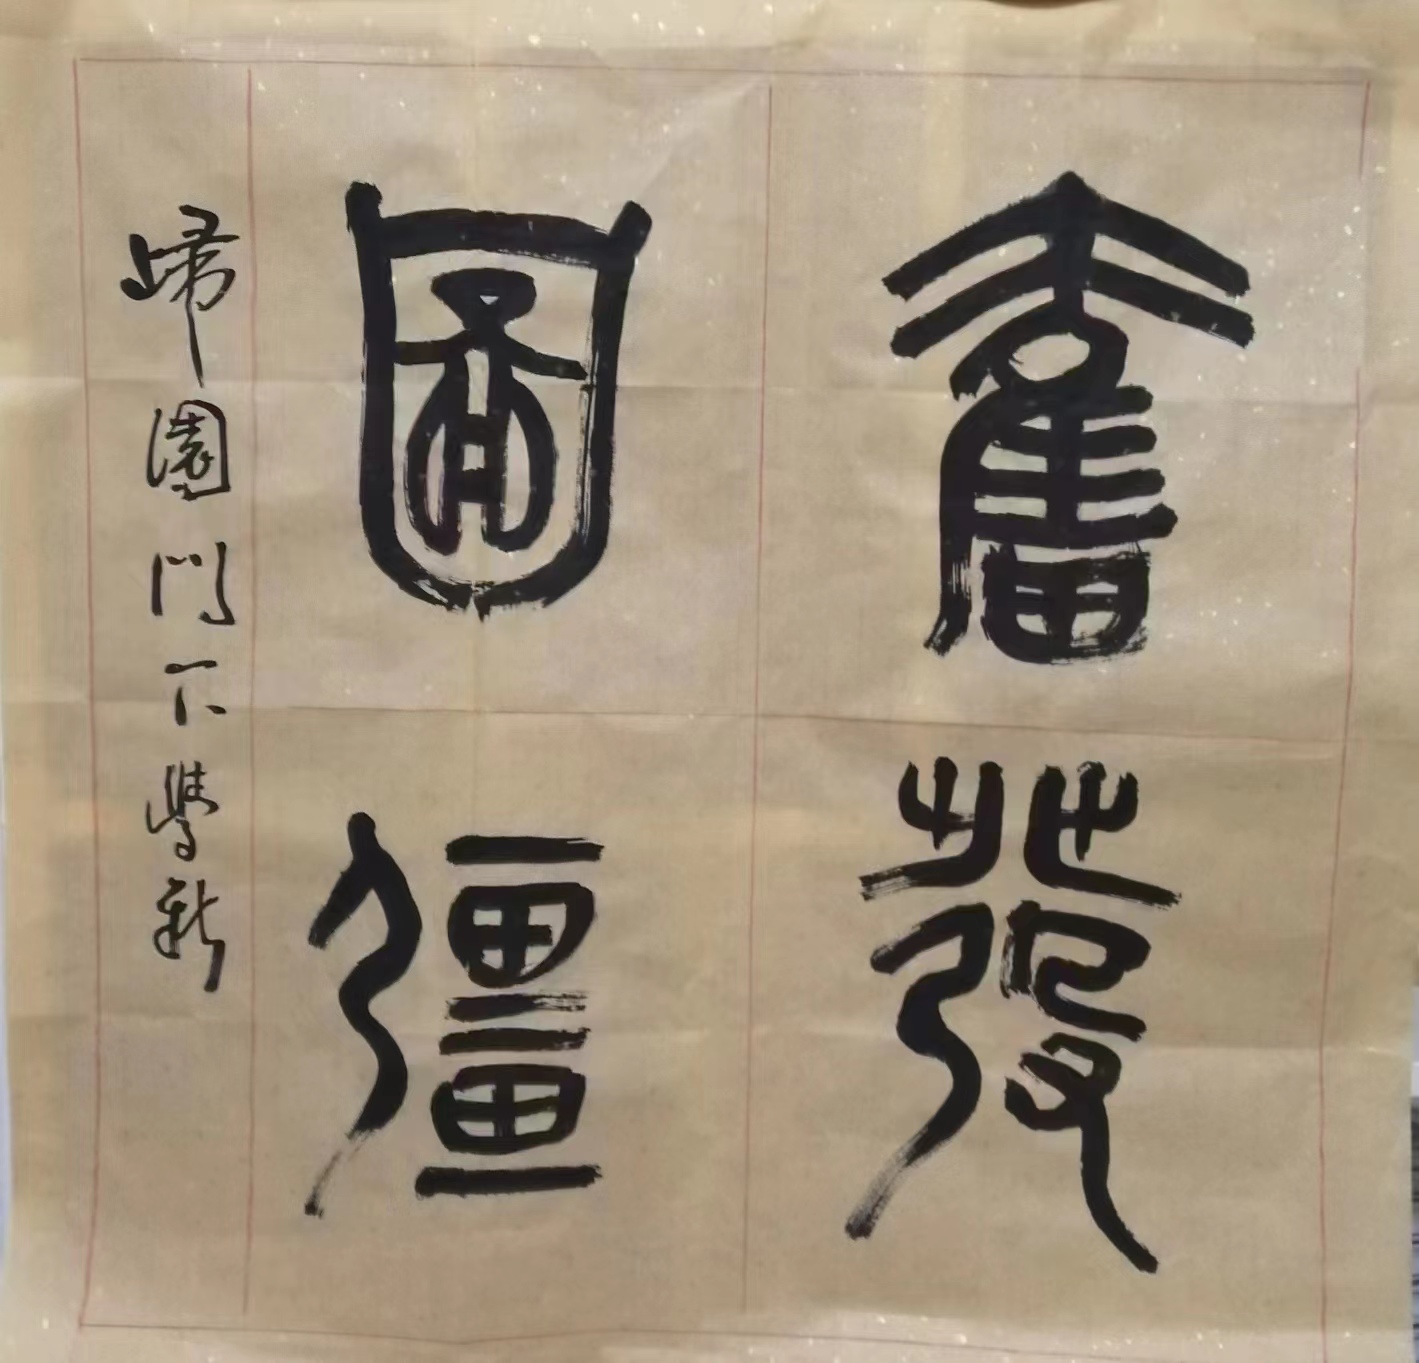 奮發
圖彊
歸園門下學新